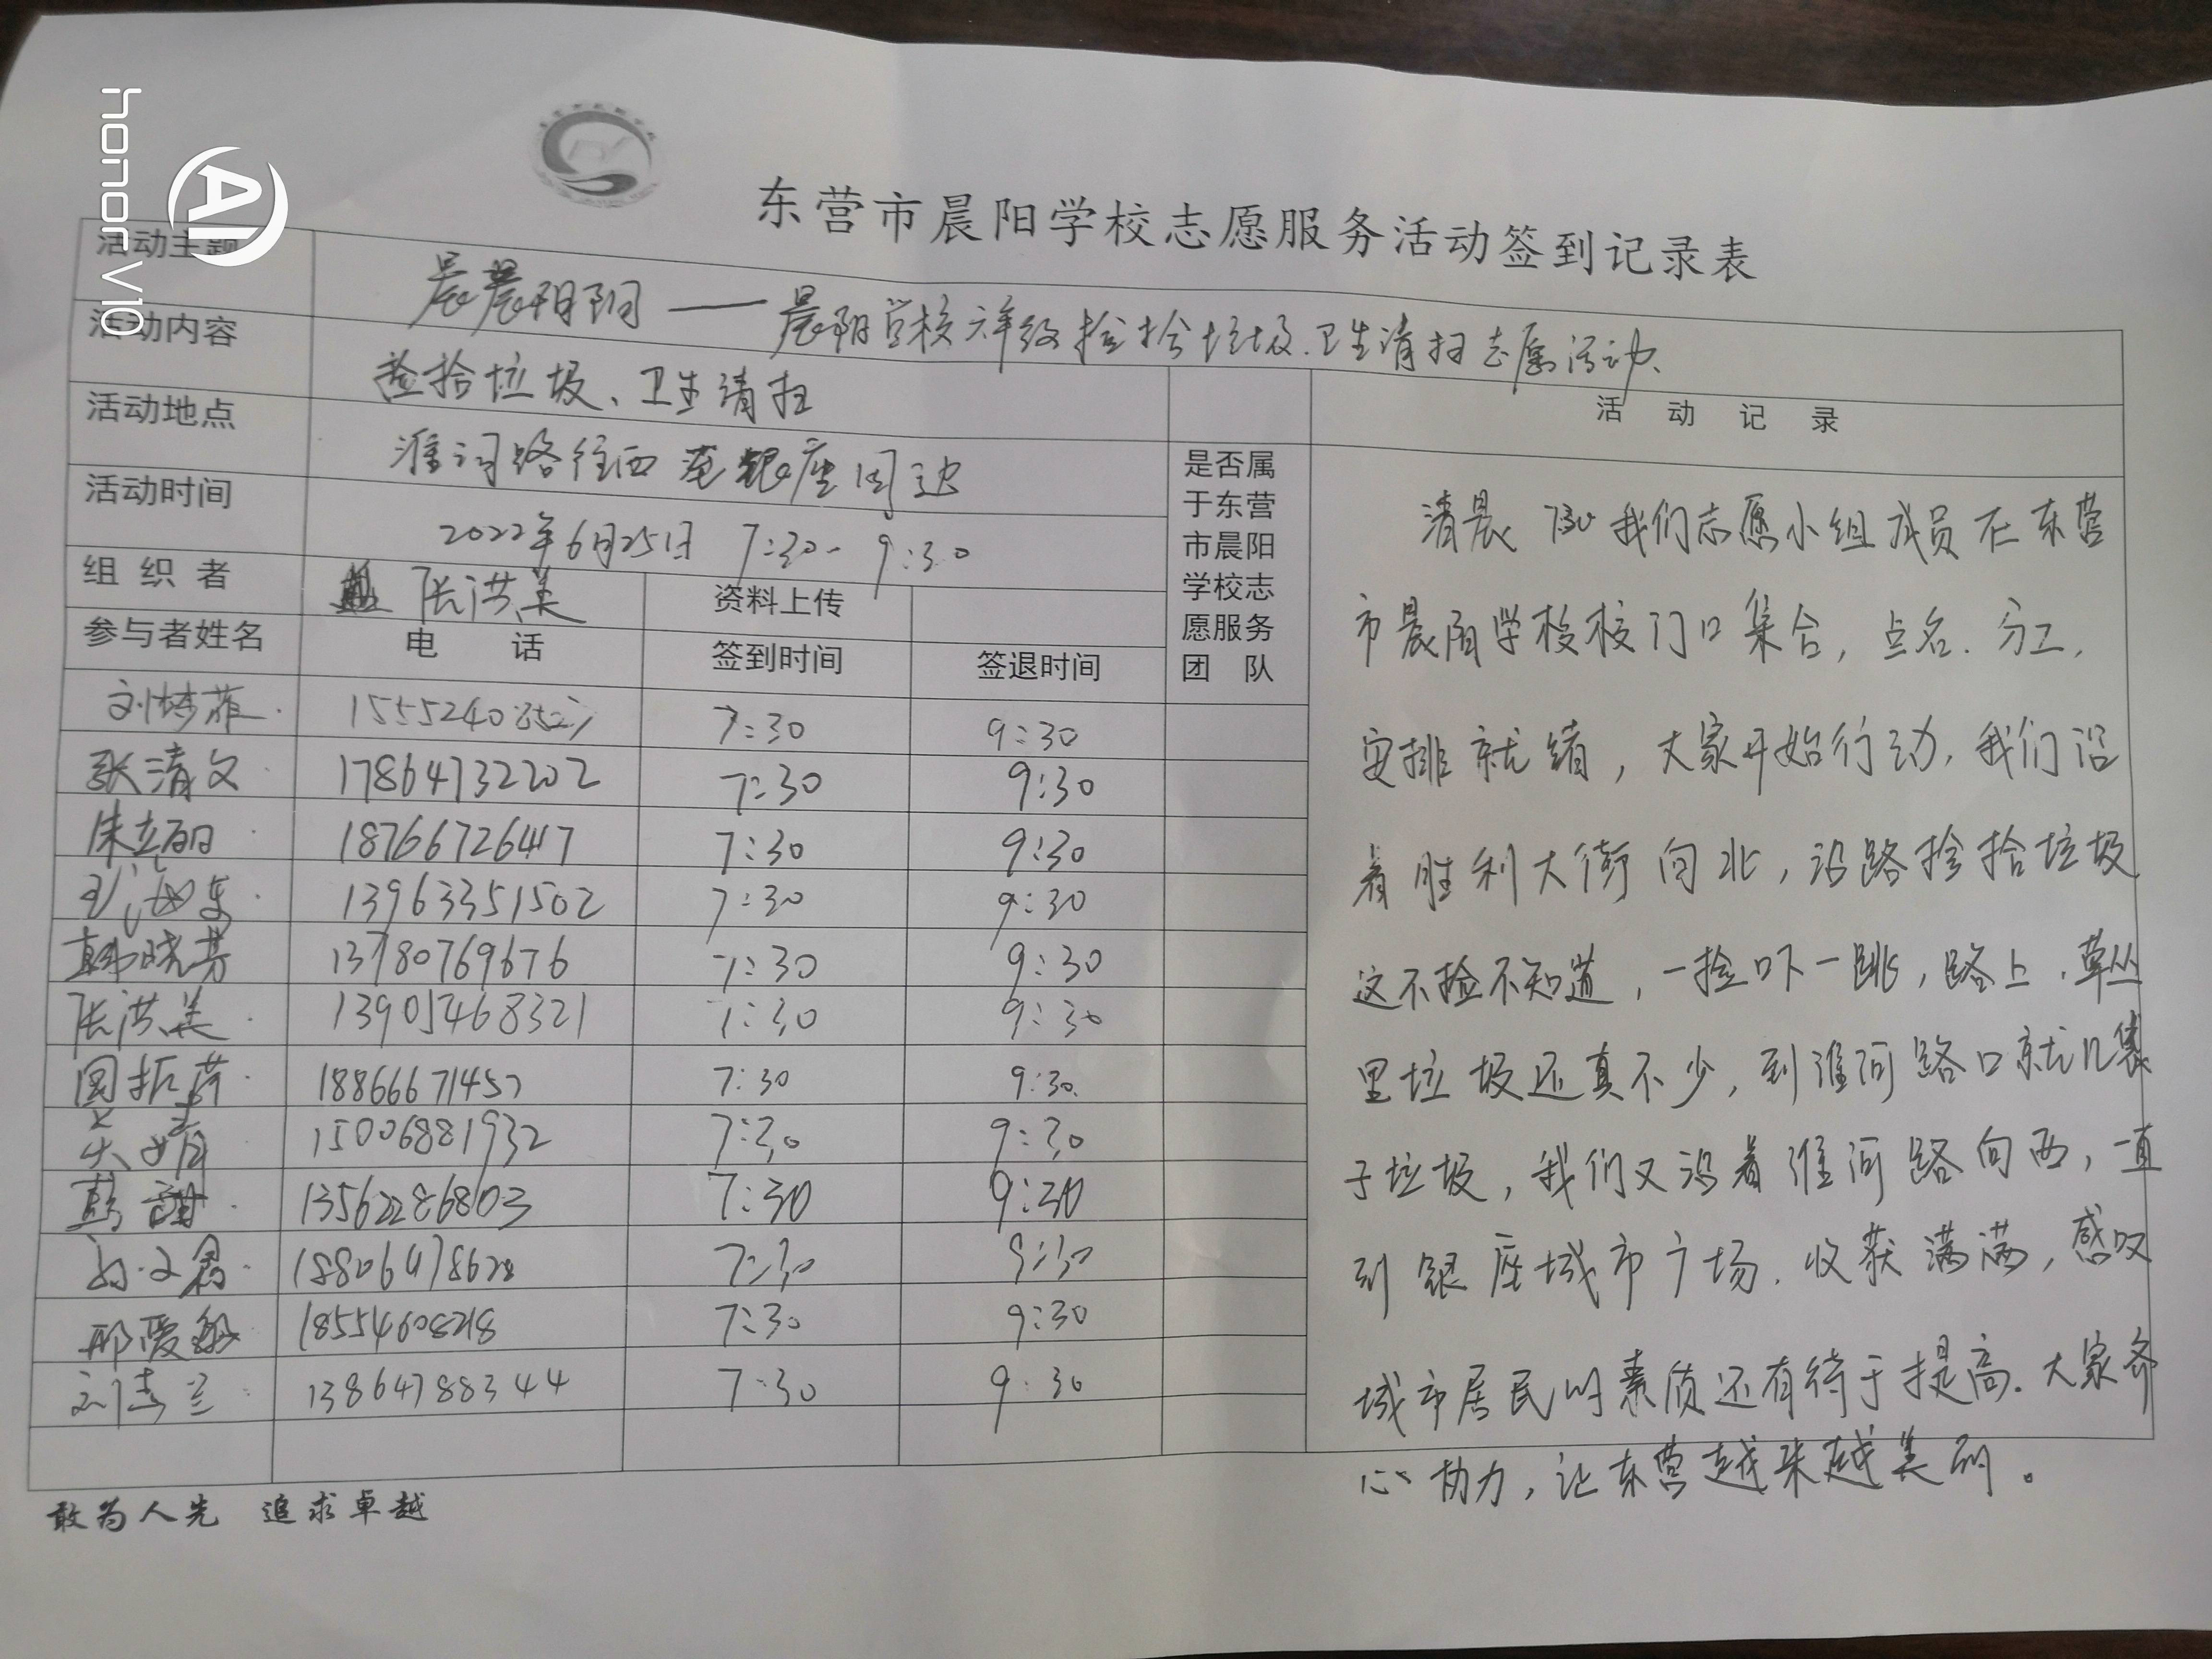 honor V10
AI
东营市晨阳学校志愿服务活动签到记录表
活动主题 晨晨阳阳——晨阳学校六年级捡拾垃圾、卫生清扫志愿活动、
活动内容 捡拾垃圾、卫生清扫
活动地点 淮河路往西 银座周边
活动时间 2022年6月25日 7:30- 9:30
组织者 张洪美 资料上传
参与者姓名 电话 签到时间 签退时间
是否属
于东营
市晨阳
学校志
愿服务
团队
刘梦菲 7:30 9:30
张清文 17864732202 7:30 9:30
朱立丽 18766726417 7:30 9:30
13963351502 7:30 9:30
韩晓芳 13780769676 7:30 9:30
张洪美 13905468321 7:30 9:30
国振荷 18866671457 7:30 9:30
15006881932 7:30 9:30
彭甜 13562286803 7:30 9:30
18806478628 7:30 9:30
邢爱敏 18554608218 7:30 9:30
13864788344 7:30 9:30
活动记录
清晨7:30我们志愿小组成员在东营
市晨阳学校校门口集合，点名、分工，
安排就绪，大家开始行动，我们沿
着胜利大街向北，沿路捡拾垃圾
这不捡不知道，一捡吓一跳，路上、草丛
里垃圾还真不少，到淮河路口就几袋
子垃圾，我们又沿着淮河路向西，一直
到银座城市广场，收获满满，感叹
城市居民的素质还有待于提高。大家齐
心协力，让东营越来越美丽。
敢为人先 追求卓越